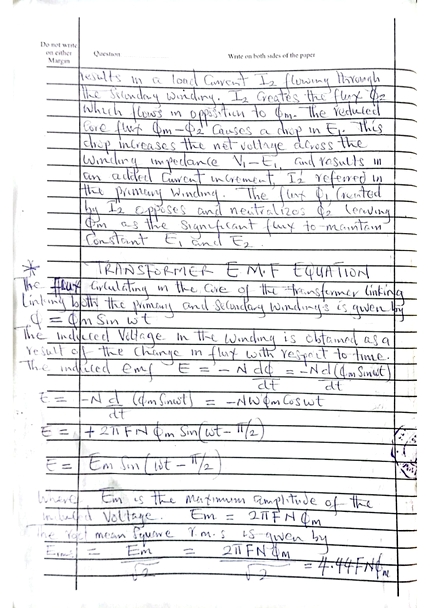 Do not write
on either
Margin
Question
Write on both sides of the paper
results in a load Current I2 flowing through
the Secondary winding. I2 Creates the flux Φ2
which flows in opposition to Φm. The reduced
Core flux Φm-Φ2 Causes a drop in E1. This
drop increases the net voltage across the
winding impedance V1-E1, and results in
an added Current increment, I2' referred in
the primary winding. The flux Φ1 Created
by I2 opposes and neutralizes Φ2 leaving
Φm as the significant flux to maintain
Constant E1 and E2.
* TRANSFORMER E M.F EQUATION
The flux Circulating in the Core of the transformer linking
linking both the primary and Secondary winding's is given by
Φ = Φm Sin wt
The induced Voltage in the winding is obtained as a
result of the change in flux with respect to time.
The induced emf E = -N dΦ/dt = -N d(Φm Sinwt)/dt
E = -N d/dt (Φm Sinwt) = -NWΦm Coswt
E = +2πFNΦm Sin(wt-π/2)
E = Em Sin(wt-π/2)
Where Em is the maximum amplitude of the
induced Voltage. Em = 2πFNΦm
The root mean Square r.m.s is given by
Erms = Em/√2 = 2πFNΦm/√2 = 4.44FNΦm